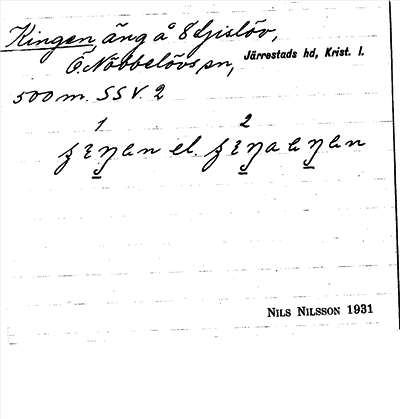 Kingen, äng å 8 Gislöv,
Ö. Nöbbelövs sn, Järrestads hd, Krist. l.
500 m. SSV. 2
1 2
el.
NILS NILSSON 1931